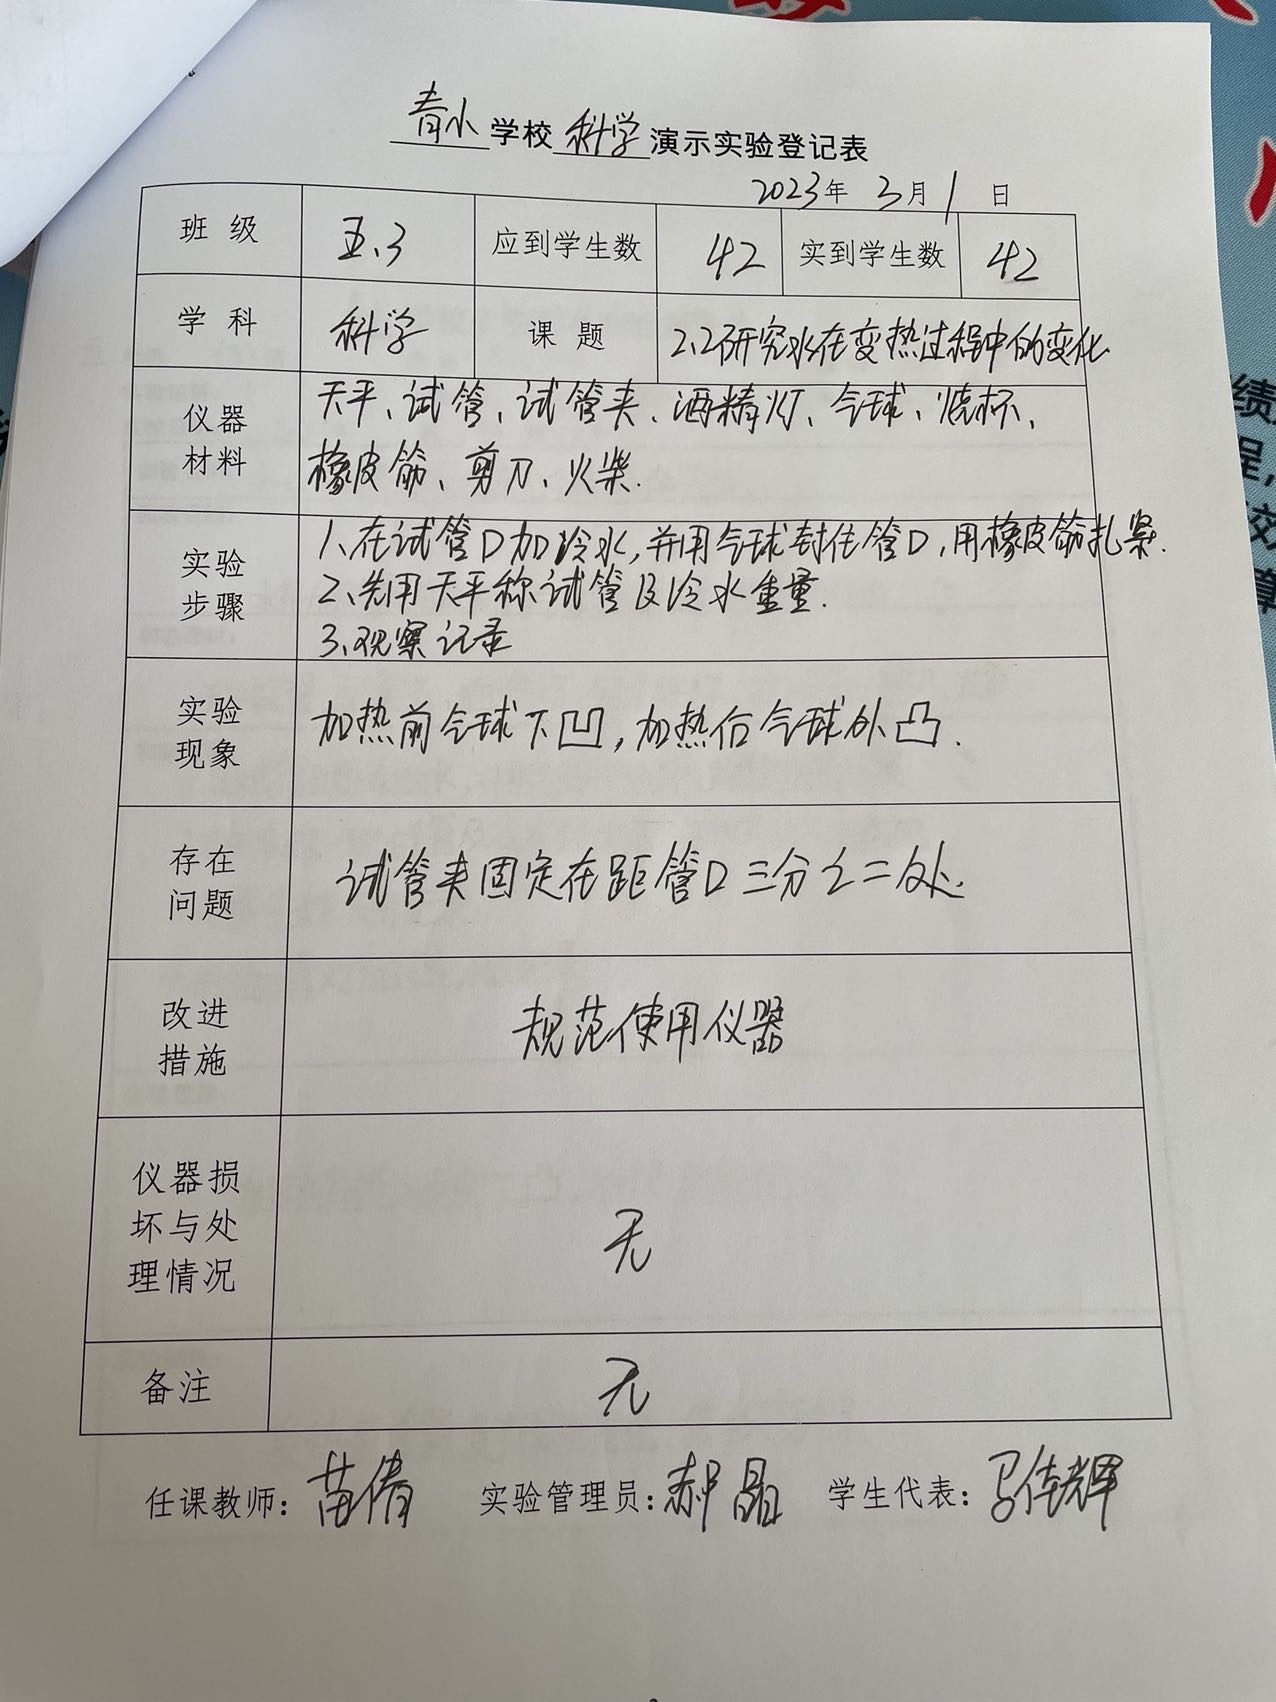 青小学校科学演示实验登记表
2023年3月1日
班级 五.3 应到学生数 42 实到学生数 42
学科 科学 课题 2.2研究水在变热过程中的变化
仪器材料 天平、试管、试管夹、酒精灯、气球、烧杯、
橡皮筋、剪刀、火柴.
实验步骤 1、在试管口加冷水,并用气球封住管口,用橡皮筋扎紧.
2、先用天平称试管及冷水重量.
3、观察记录
实验现象 加热前气球下凹,加热后气球外凸.
存在问题 试管夹固定在距管口三分之二处.
改进措施 规范使用仪器
仪器损坏与处理情况 无
备注 无
任课教师:苗倩 实验管理员:郝晶 学生代表:马佳辉
绩
程,
效
章